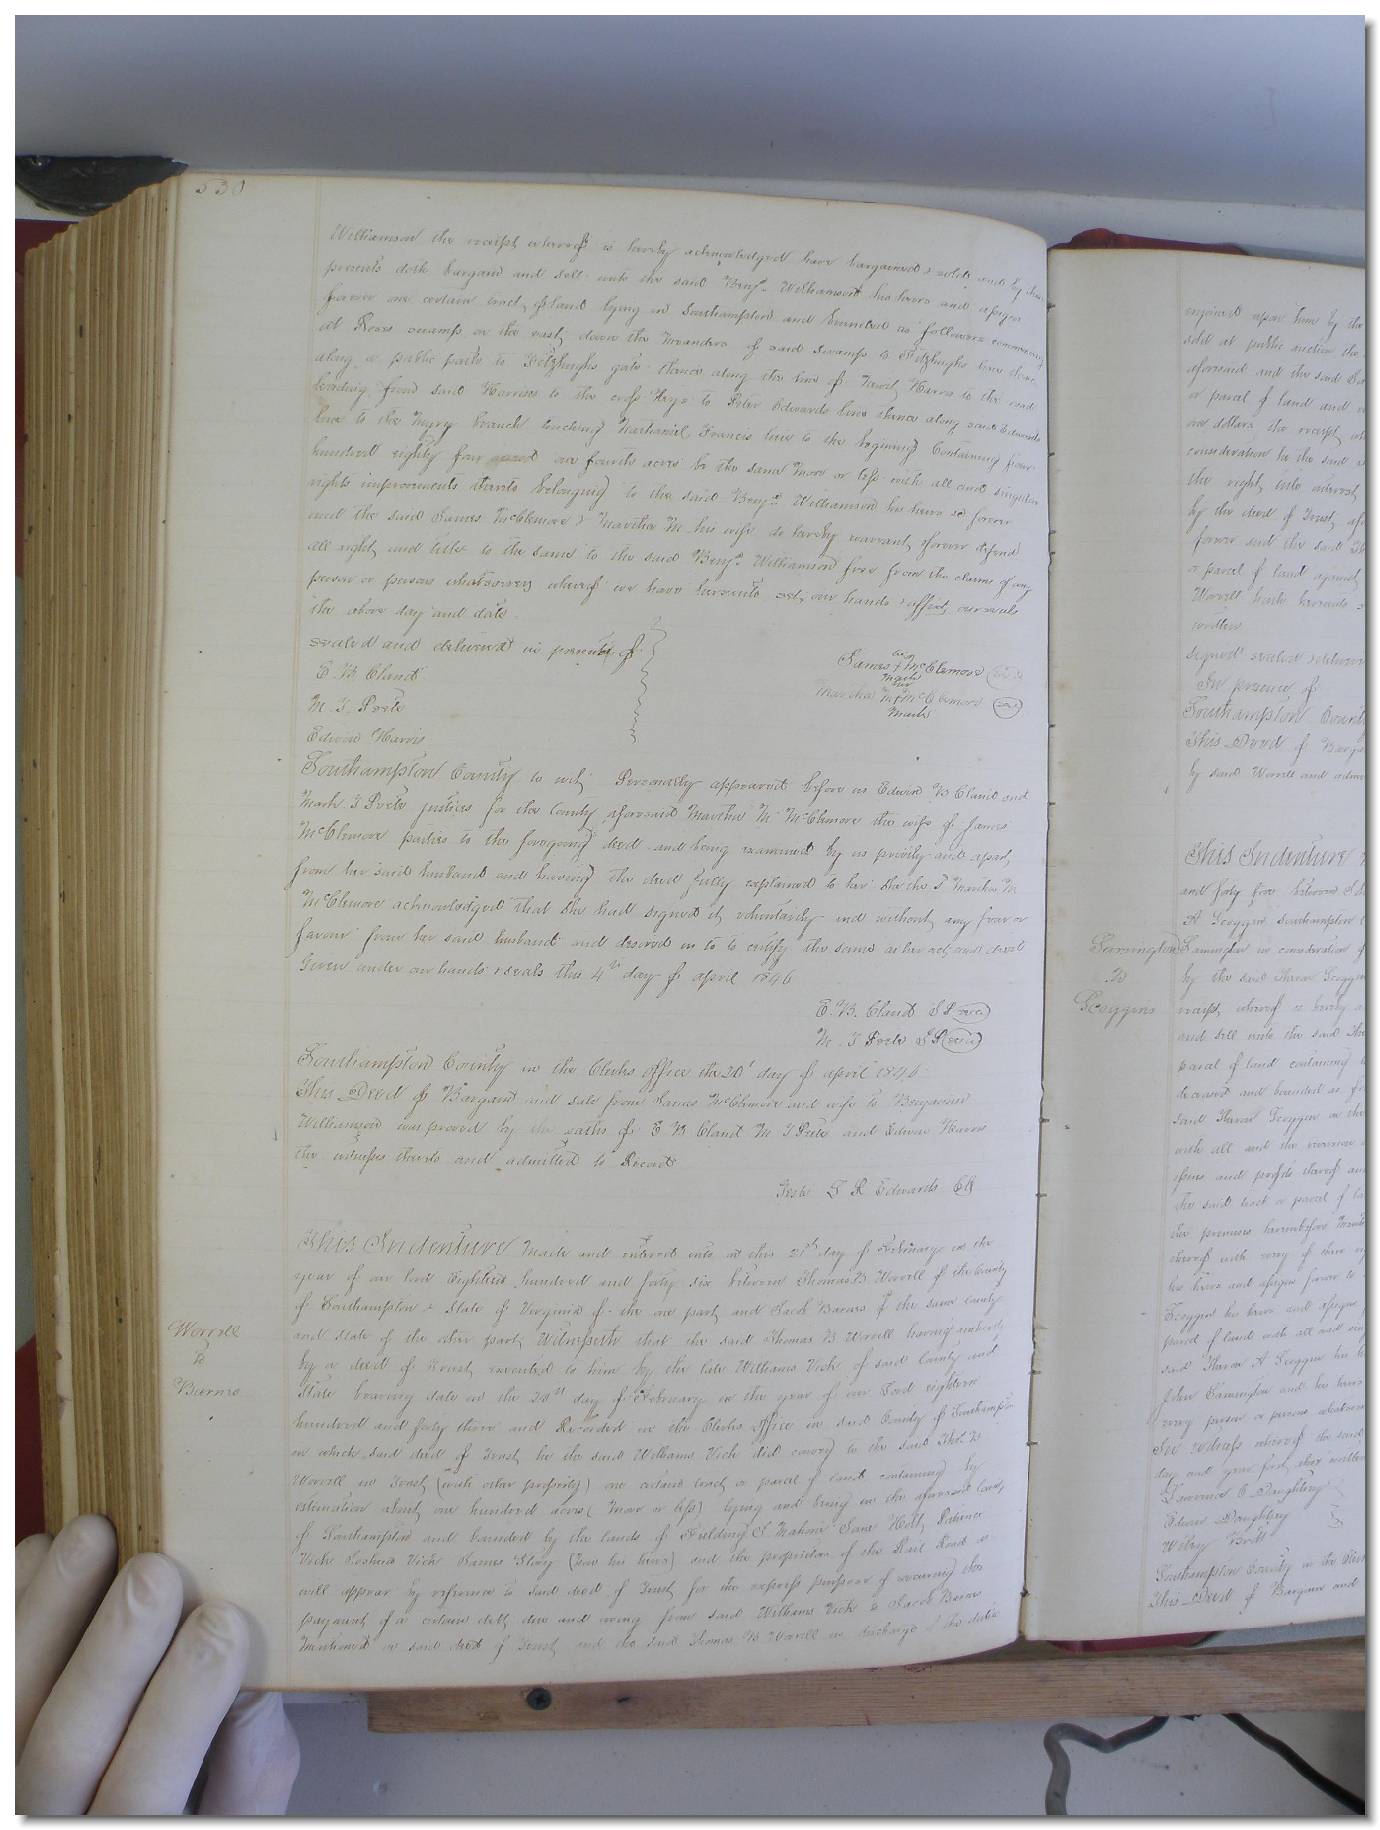 530
Williamson the receipt whereof is hereby acknowledged have bargained & sold and by these
presents doth bargain and sell unto the said Benjn Williamson his heirs and assigns
forever one certain tract of land lying in Southampton and bounded as follows commencing
at Roses swamp on the east, down the meanders of said swamp to Fitzhughs line thence
along a public path to Fitzhughs gate thence along the line of Harris to the road
leading from said Harrises to the cross Keys to Peter Edwards line thence along said Edwards
line to the Myry branch touching Nathaniel Francis line to the beginning Containing four
hundred eighty four one fourth acres be the same more or less with all and singular
rights improvements thereto belonging to the said Benjn Williamson his heirs forever
and the said James McClemore & Martha M his wife do hereby warrant & forever defend
all right and title to the same to the said Benjn Williamson free from the claims of any
person or persons whatsoever whereof we have hereunto set our hands & affixt our seals
the above day and date
sealed and delivered in presents of
E. B. Claud
M. T. Peete
Edwin Harris
James + McClemore
mark
Martha M + McClemore seal
mark
Southampton County to wit; Personally appeared before us Edwin B Claud and
Mark T Peete justices for the County aforesaid Martha M McClemore the wife of James
McClemore parties to the foregoing deed and being examined by us privily and apart
from her said husband and having the deed fully explained to her she the sd Martha M
McClemore acknowledged that she had signed it voluntarily and without any fear or
favour from her said husband and desired us to to certify the same as her act and deed
Given under our hands & seals this 4th day of april 1846
E. B. Claud J P seal
M. T Peete J P seal
Southampton County in the Clerks office the 20t day of april 1846
This Deed of Bargain and sale from James McClemore and wife to Benjamin
Williamson was proved by the oaths of E B Claud M T Peete and Edwin Harris
the witnesses thereto and admitted to Record
Teste L R Edwards Clk
This Indenture made and entered into at this 21st day of February in the
year of our lord Eighteen hundred and forty six between Thomas B. Worrell of the County
of Southampton & State of Virginia of the one part and Jacob Barnes of the same County
Worrell
to
Barnes
and state of the other part, Witnesseth that the said Thomas B Worrell having authority
by a deed of Trust executed to him by the late Williams Vick of said County and
State bearing date on the day of February in the year of our Lord eighteen
hundred and forty three and Recorded in the Clerks office in said County of Southampton
in which said deed of Trust he the said Williams Vick did convey to the said Thos B
Worrell in Trust (with other property) one certain tract or parcel of land containing by
estimation about one hundred acres (more or less) lying and being in the aforesaid County
of Southampton and bounded by the lands of Fielding J Mahone Holt,
Vick Joshua Vick James Story (now his heirs) and the proprietors of the Rail Road as
will appear by reference to said deed of Trust for the express purpose of securing the
payment of a certain debt due and owing from said Williams Vick to Jacob Barnes
mentioned in said deed of Trust, and the said Thomas B Worrell in discharge of the duties
enjoined upon him by the
sold at public auction the
aforesaid and the said
or parcel of land and
one dollar the receipt
consideration he the said
the right, title interest
by the deed of Trust
forever and the said
or parcel of land against
Worrell hath hereunto
written
Signed sealed & delivered
In presence of
Southampton County
This Deed of Bargain
by said Worrell and
This Indenture
and forty five between
A Scoggin Southampton
in consideration of
to
Scoggins
by the said Scoggin
receipt whereof is hereby
and sell unto the said
parcel of land containing
deceased and bounded as
said Scoggin
with all and the
issues and profits thereof and
the said tract or parcel of
the premises hereinbefore
thereof with every
his heirs and assigns forever to
Scoggin his heirs and assigns
parcel of land with all and
said A Scoggin his
John and his heirs
every person or persons whatsoever
In witness whereof the said
day and year first above written
Lawrence C Daughtrey
Edwin Daughtrey
Wiley Britt
Southampton County in the Clerks
This Deed of Bargain and